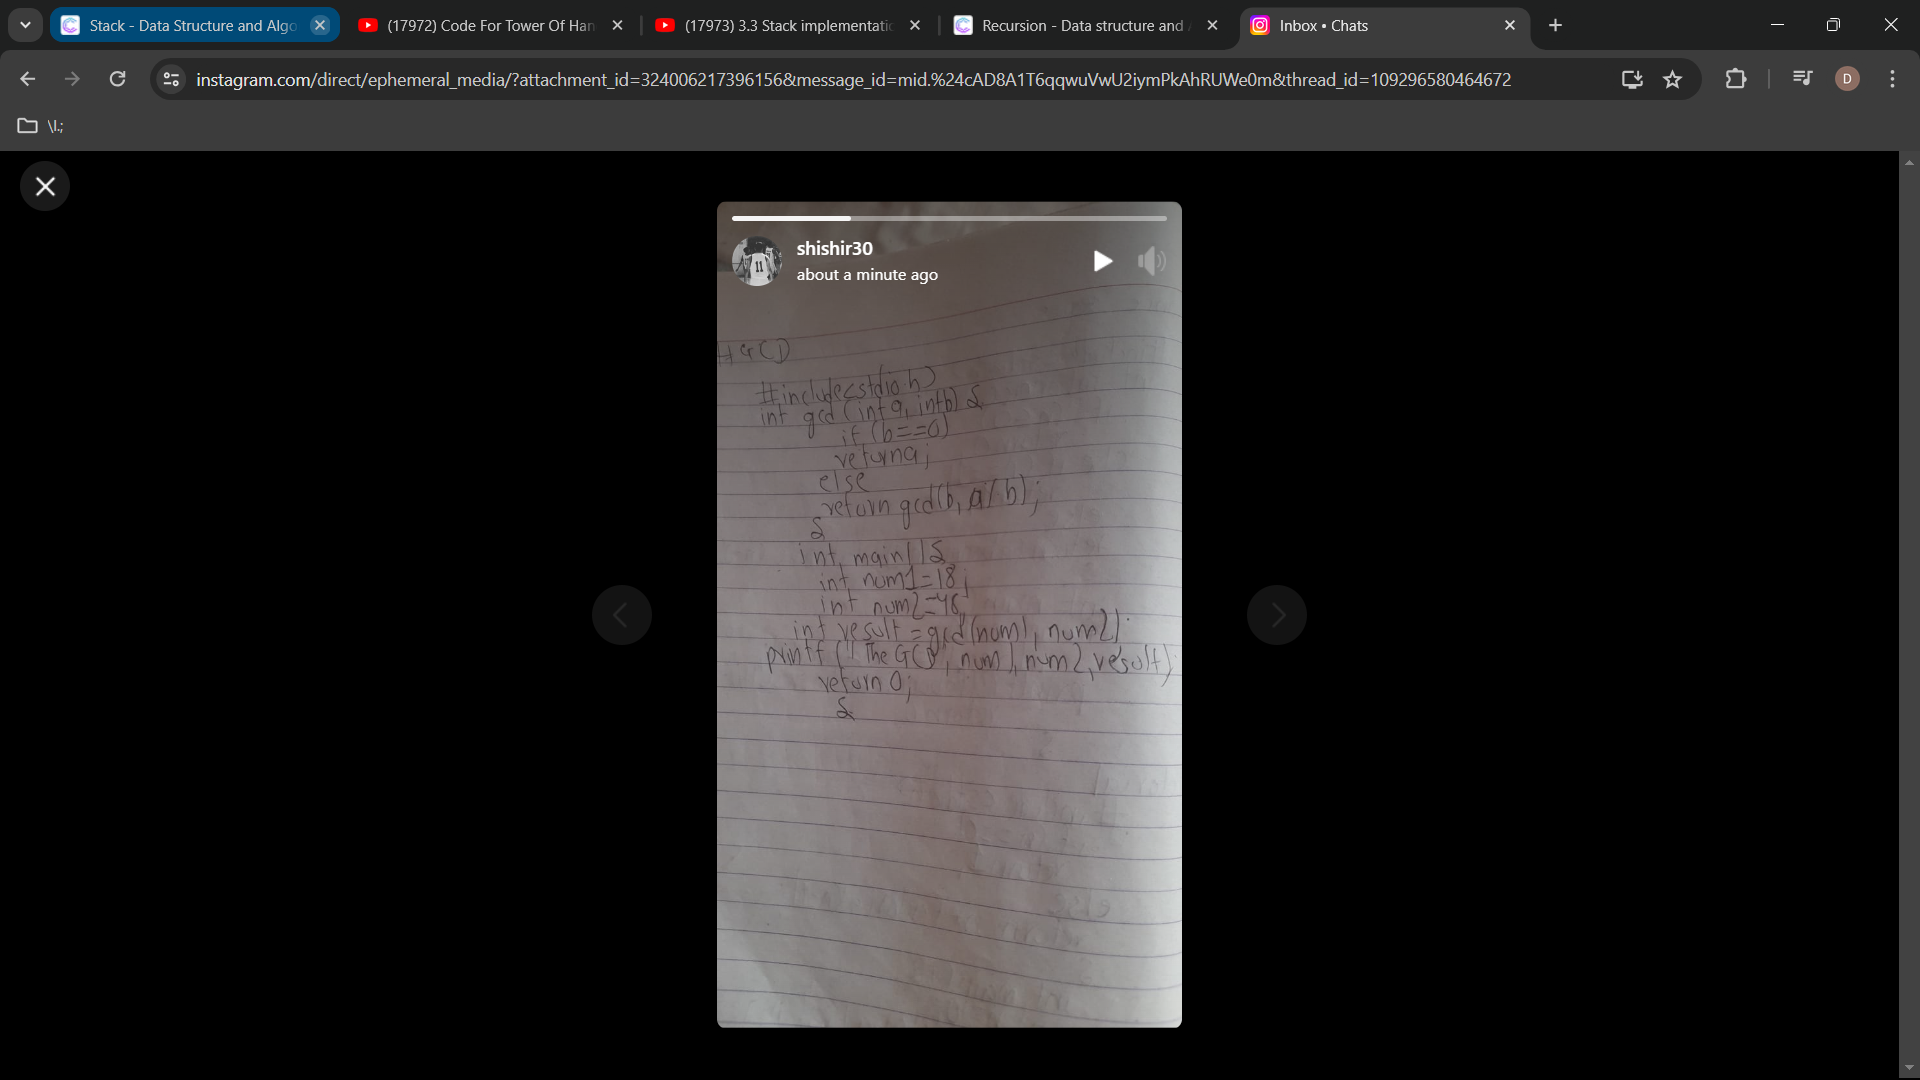 Stack - Data Structure and Algo
(17972) Code For Tower Of Han
(17973) 3.3 Stack implementatio
Recursion - Data structure and A
Inbox • Chats
instagram.com/direct/ephemeral_media/?attachment_id=324006217396156&message_id=mid.%24cAD8A1T6qqwuVwU2iymPkAhRUWe0m&thread_id=109296580464672
D
\l.;
shishir30
about a minute ago
11
# GCD
#include<stdio.h)
int gcd (int a, int b) {
if (b==0)
return a;
else
return gcd(b, a/b);
}
int main() {
int num1=18;
int num2=48;
int result = gcd(num1, num2);
printf (" The GCD", num1, num2, result);
return 0;
}